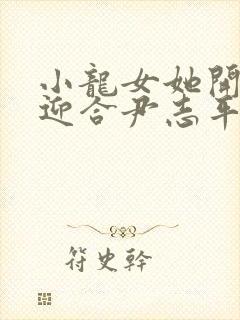 小龍女她開
迎合尹志平
符史幹